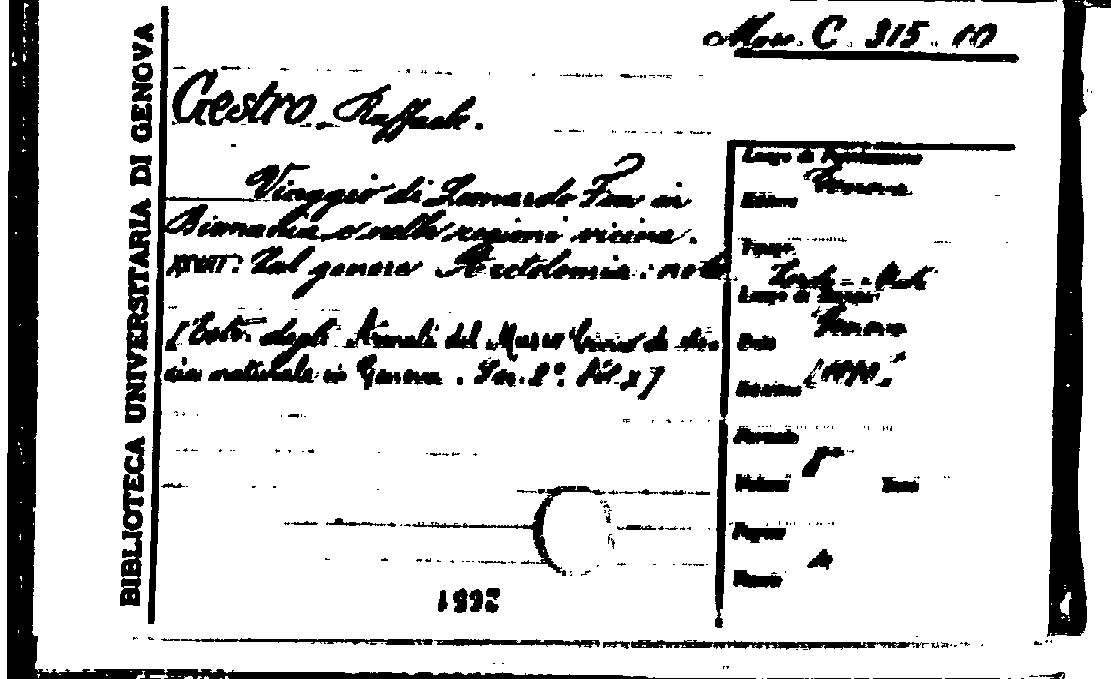 BIBLIOTECA UNIVERSITARIA DI GENOVA
Misc. C. 315.10
Gestro, Raffaele.
Viaggio di Leonardo Fea in
Birmania e nelle regioni vicine.
XXVII: Sul genere : note
[Estr. dagli Annali del Museo Civico di sto
ria naturale in Genova. Ser. 2ª. Vol. X]
Luogo di Pubblicazione
Genova
Editore
Luogo di Stampa
Genova
Data
Edizione
Formato
8º
Volumi Tomi
Pagine
Tavole
1992